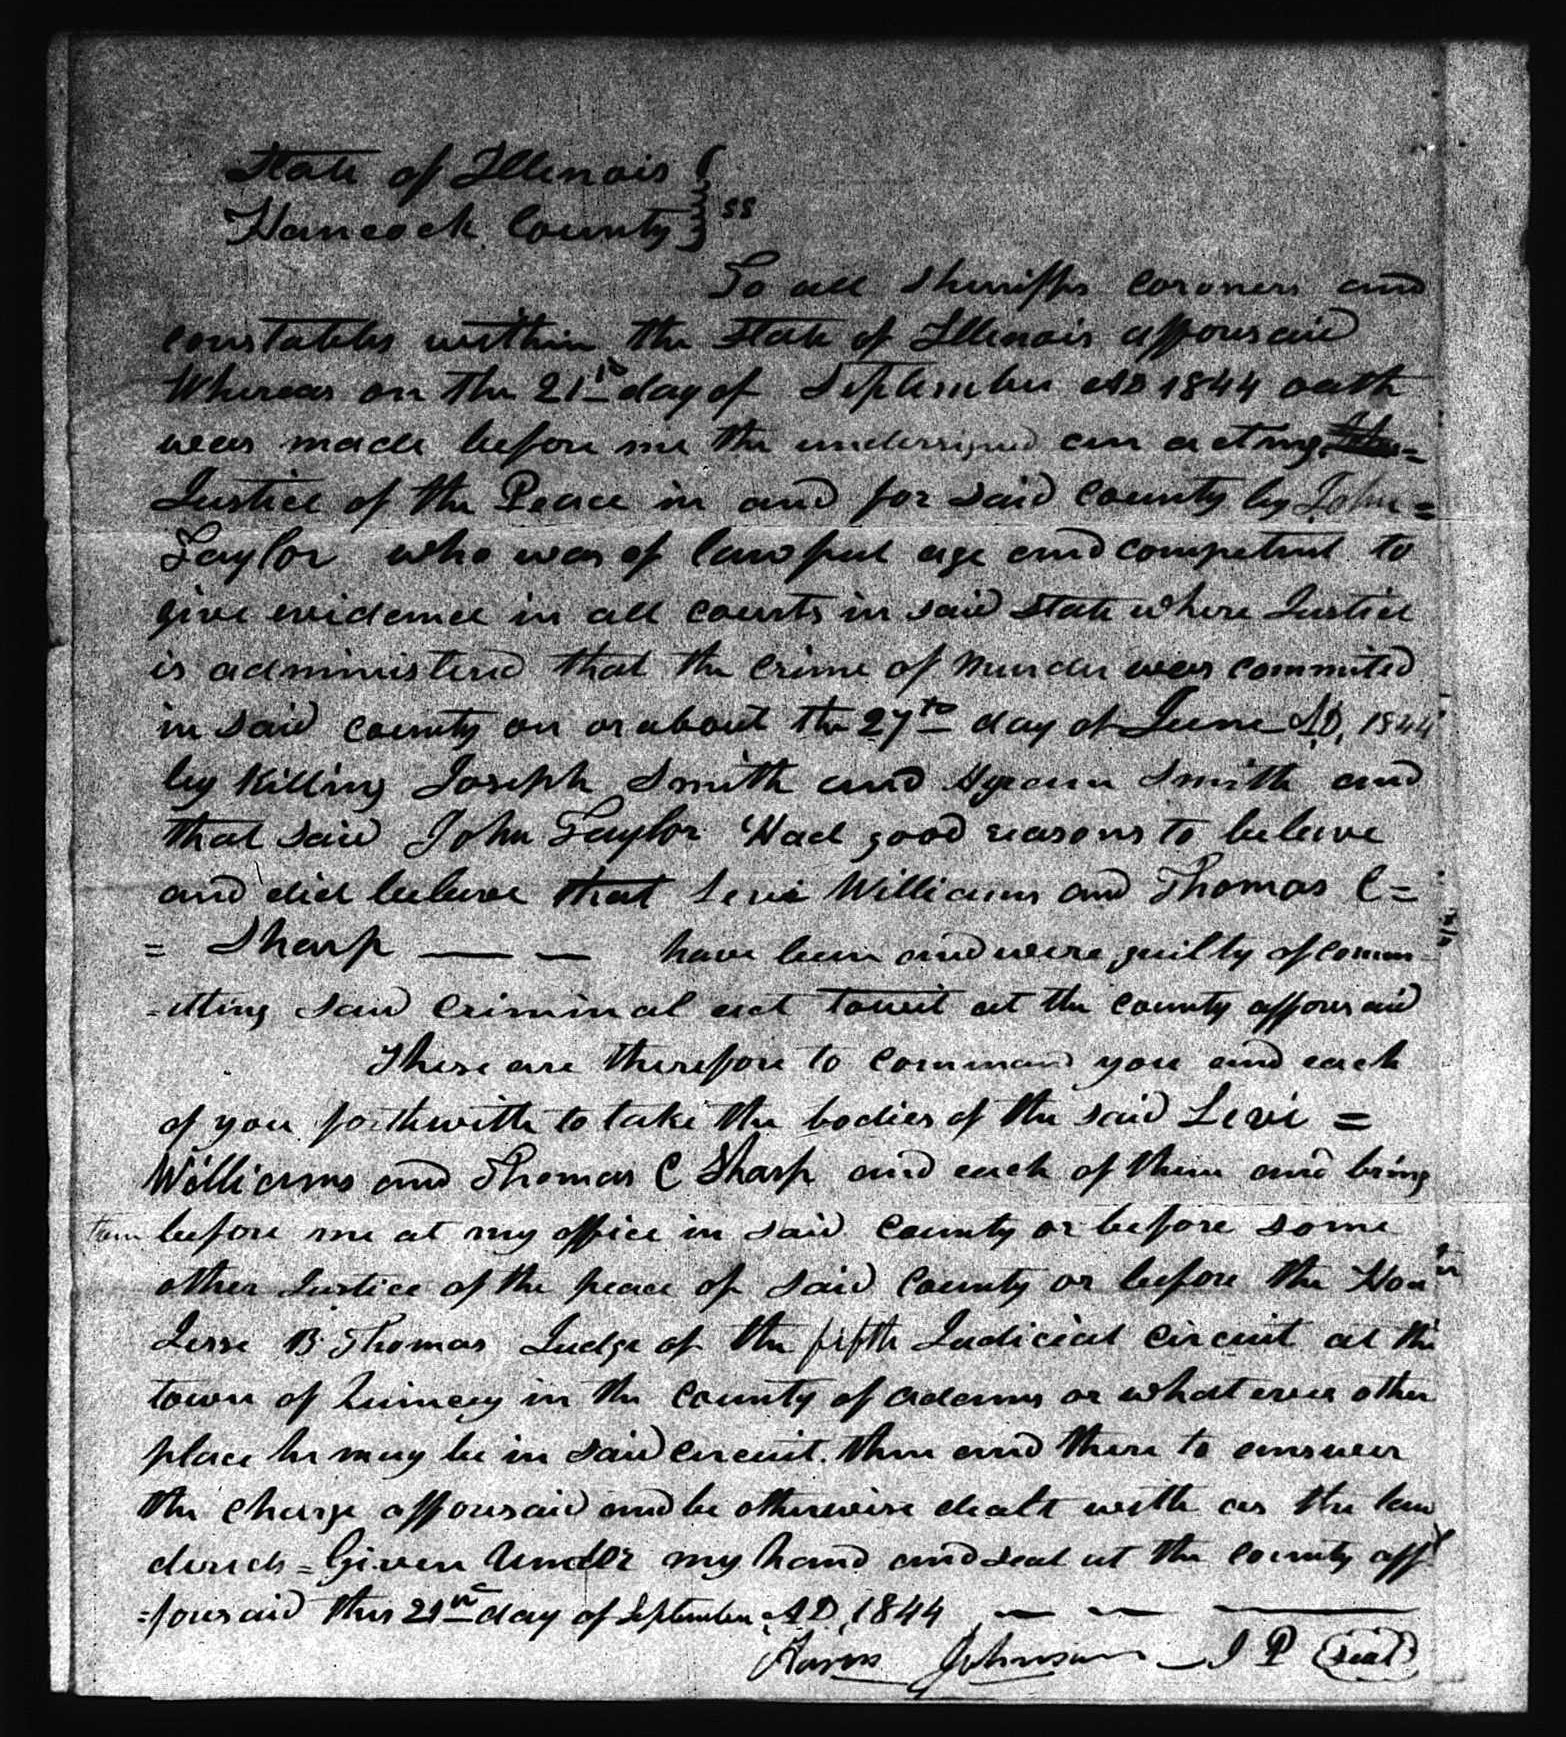 State of Illinois }
Hancock County } ss
To all Sheriffs coroners and
constables within the State of Illinois afforsaid
Whereas on the 21st day of September AD 1844 oath
was made before me the undersigned an acting
Justice of the Peace in and for said county by John =
Taylor who was of lawful age and competent to
give evidence in all courts in said State where Justice
is administered that the crime of Murder was commited
in said county on or about the 27th day of June A.D. 1844
by killing Joseph Smith and Hyram Smith and
that said John Taylor Had good reasons to beleive
and did beleive that Levi Williams and Thomas C =
= Sharp — — have been and were guilty of comm
-itting said criminal act towit at the county afforsaid
These are therefore to command you and each
of you forthwith to take the bodies of the said Levi =
Williams and Thomas C Sharp and each of them and bring
them before me at my office in said county or before some
other Justice of the peace of said County or before the Hon
Jesse B Thomas Judge of the fifth Judicial circuit at the
town of Quincy in the county of Adams or whatever other
place he may be in said circuit. then and there to answer
the charge afforesaid and be otherwise dealt with as the law
directs = Given Under my hand and seal at the county aff
=foresaid this 21st day of September A.D. 1844 — — —
Aaron Johnson — J P (seal)